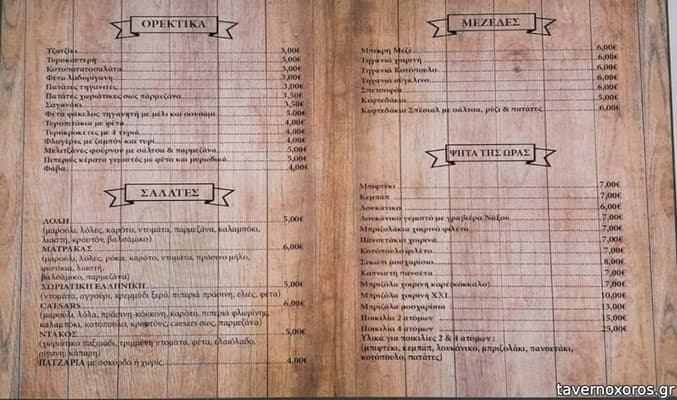 ΟΡΕΚΤΙΚΑ
Τζατζίκι 3,00€
Τυροκαυτερή 3,00€
Κοτοπατατοσαλάτα 3,00€
Φέτα λαδορίγανη 3,00€
Πατάτες τηγανιτές 3,00€
Πατάτες χωριάτικες σως παρμεζάνα 3,50€
Σαγανάκι 3,50€
Φέτα φάκελος τηγανητή με μέλι και σουσάμι 5,00€
Τυροπιτάκια με φέτα 4,00€
Τυροκροκέτες με 4 τυριά 4,00€
Φλογέρες με ζαμπόν και τυρί 4,00€
Μελιτζάνες φούρνου με σάλτσα & παρμεζάνα 5,00€
Πιπεριές κέρατο γεμιστές με φέτα και μυρωδικά 5,00€
Φάβα 4,00€
ΣΑΛΑΤΕΣ
ΛΟΛΗ 5,00€
(μαρούλι, λόλες, καρότο, ντομάτα, παρμεζάνα, καλαμπόκι,
λιαστή, κρουτόν, βαλσάμικο)
ΜΑΤΡΑΚΑΣ 6,00€
(μαρούλι, λόλες, ρόκα, καρότο, ντομάτα, πράσινο μήλο,
φιστίκια, λιαστή,
βαλσάμικο, παρμεζάνα)
ΧΩΡΙΑΤΙΚΗ ΕΛΛΗΝΙΚΗ 5,00€
(ντομάτα, αγγούρι, κρεμμύδι ξερό, πιπεριά πράσινη, ελιές, φέτα)
CAESARS 6,00€
(μαρούλι, λόλα, πράσινη-κόκκινη, καρότο, πιπεριά φλωρίνης,
καλαμπόκι, κοτόπουλο, κρουτόνς, caesars σως, παρμεζάνα)
ΝΤΑΚΟΣ 5,00€
(χωριάτικο παξιμάδι, τριμμένη ντομάτα, φέτα, ελαιόλαδο,
ρίγανη, κάπαρη)
ΠΑΤΖΑΡΙΑ με σκόρδο ή χωρίς 4,00€
ΜΕΖΕΔΕΣ
Μπεκρή Μεζέ 6,00€
Τηγανιά χοιρινή 6,00€
Τηγανιά Κοτόπουλο 6,00€
Τηγανιά σύγκλινο 6,00€
Σπετσοφάι 6,00€
Κεφτεδάκια 5,00€
Κεφτεδάκια Σπέσιαλ με σάλτσα, ρύζι & πατάτες 6,00€
ΨΗΤΑ ΤΗΣ ΩΡΑΣ
Μπιφτέκι 7,00€
Κεμπάπ 7,00€
Λουκάνικο 6,00€
Λουκάνικο γεμιστό με γραβιέρα Νάξου 7,00€
Μπριζολάκια χοιρινά φιλέτο 7,00€
Πανσετάκια χοιρινά 7,00€
Κοτόπουλο φιλέτο 7,00€
Συκώτι μοσχαρίσιο 8,00€
Καπνιστή πανσέτα 7,00€
Μπριζόλα χοιρινή καρέ(κόκκαλο) 7,00€
Μπριζόλα χοιρινή XXL 10,00€
Μπριζόλα μοσχαρίσια 13,00€
Ποικιλία 2 ατόμων 15,00€
Ποικιλία 4 ατόμων 25,00€
Υλικά για ποικιλίες 2 & 4 ατόμων :
(μπιφτέκι, κεμπάπ, λουκάνικο, μπριζολάκι, πανσετάκι,
κοτόπουλο, πατάτες)
tavernoxoros.gr